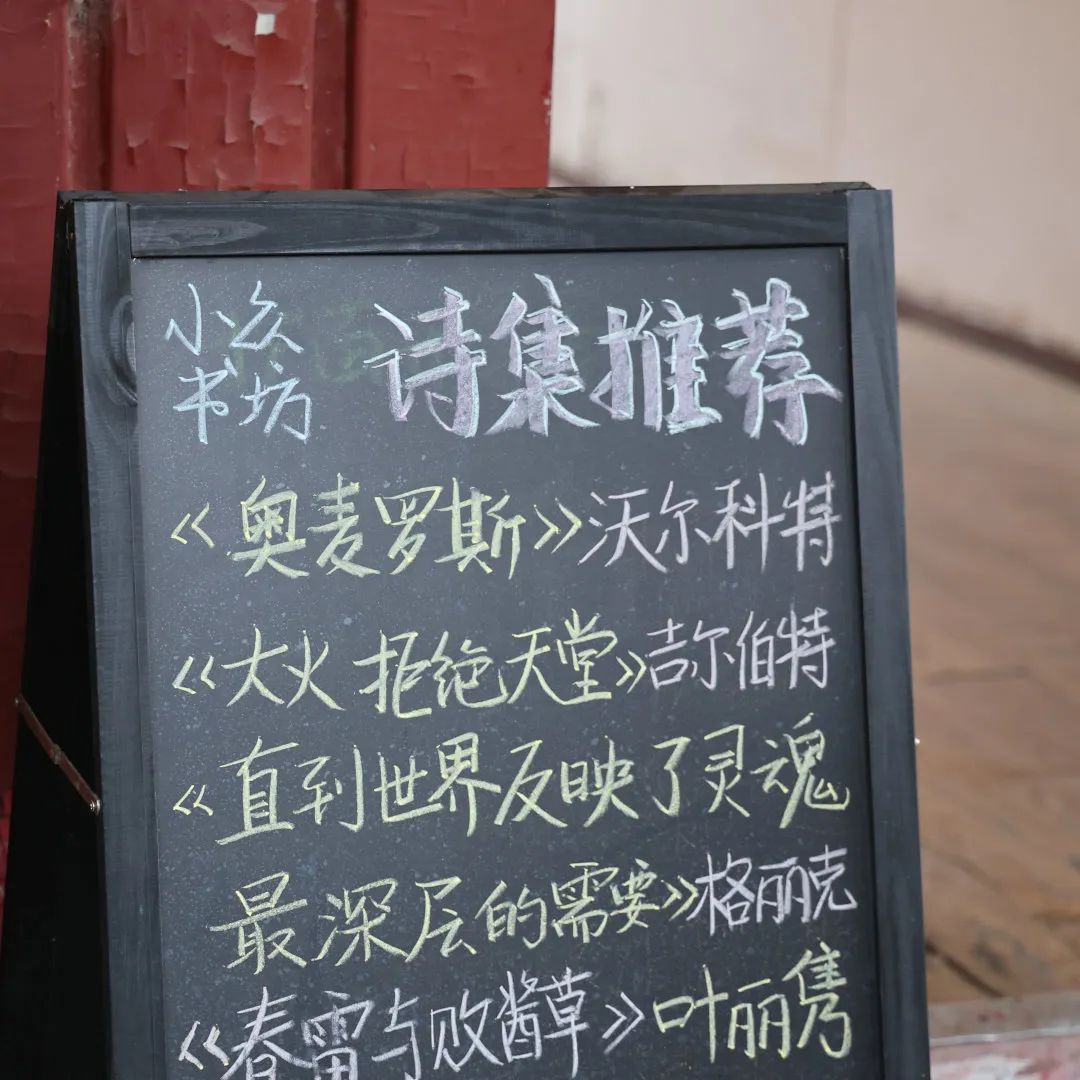 小众书坊
诗集推荐
《奥麦罗斯》沃尔科特
《大火 拒绝天堂》吉尔伯特
《直到世界反映了灵魂
最深层的需要》格丽克
《春雷与败酱草》叶丽隽